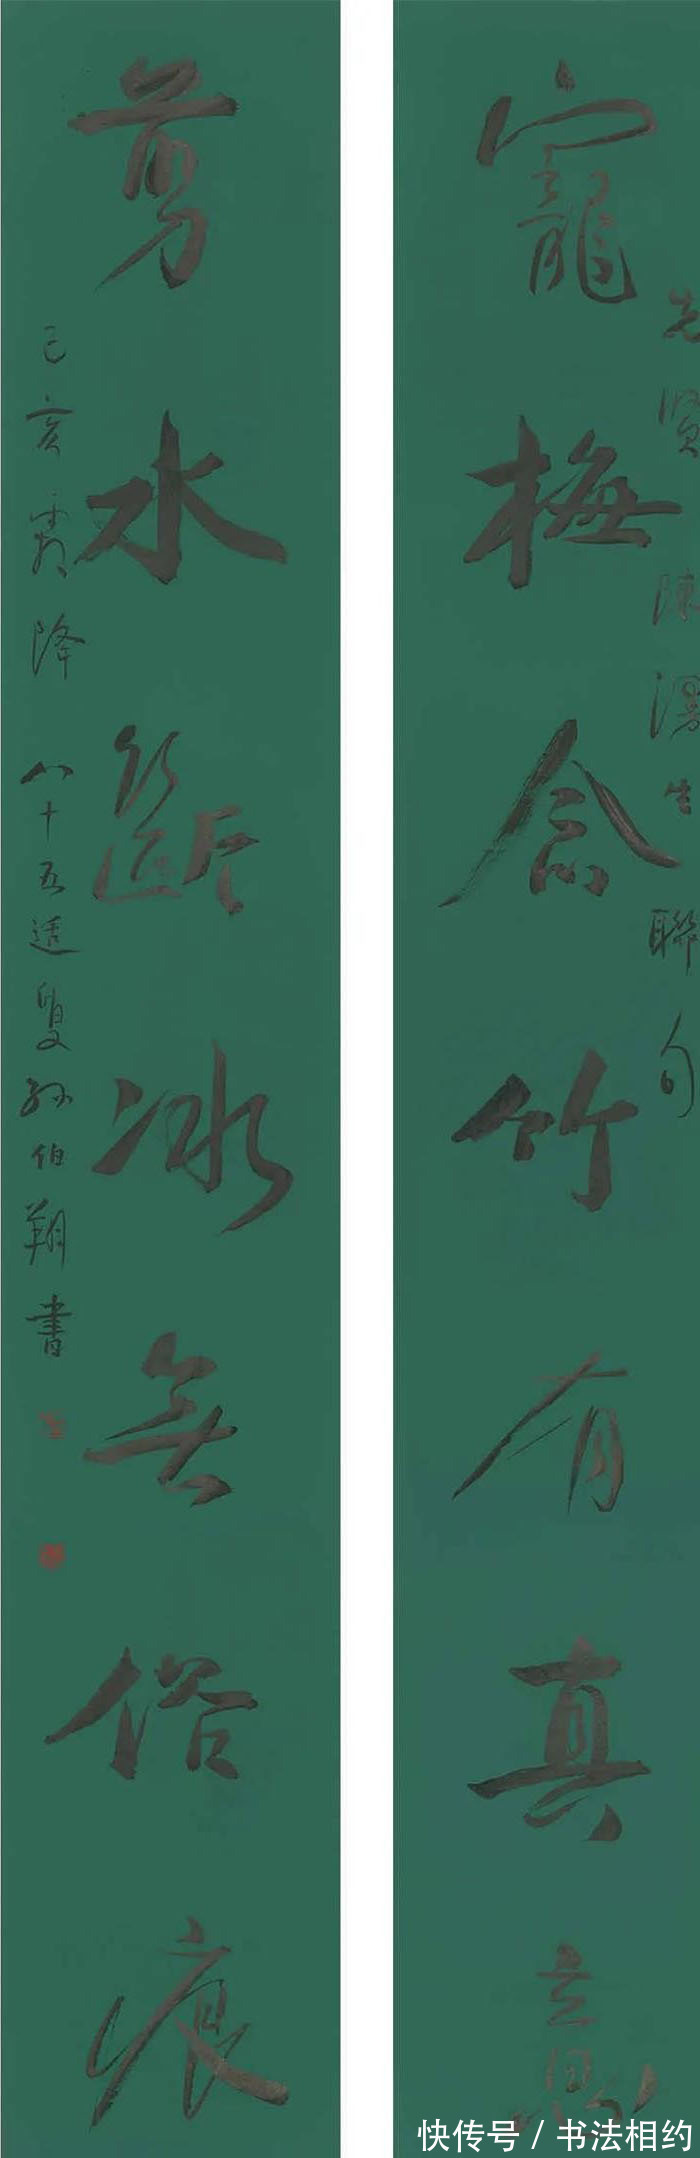 先賢陳漫生聯句
寵梅念竹有真意
剪水斷冰無俗痕
己亥霜降 八十五适叟孫伯翔書
快传号 / 书法相约